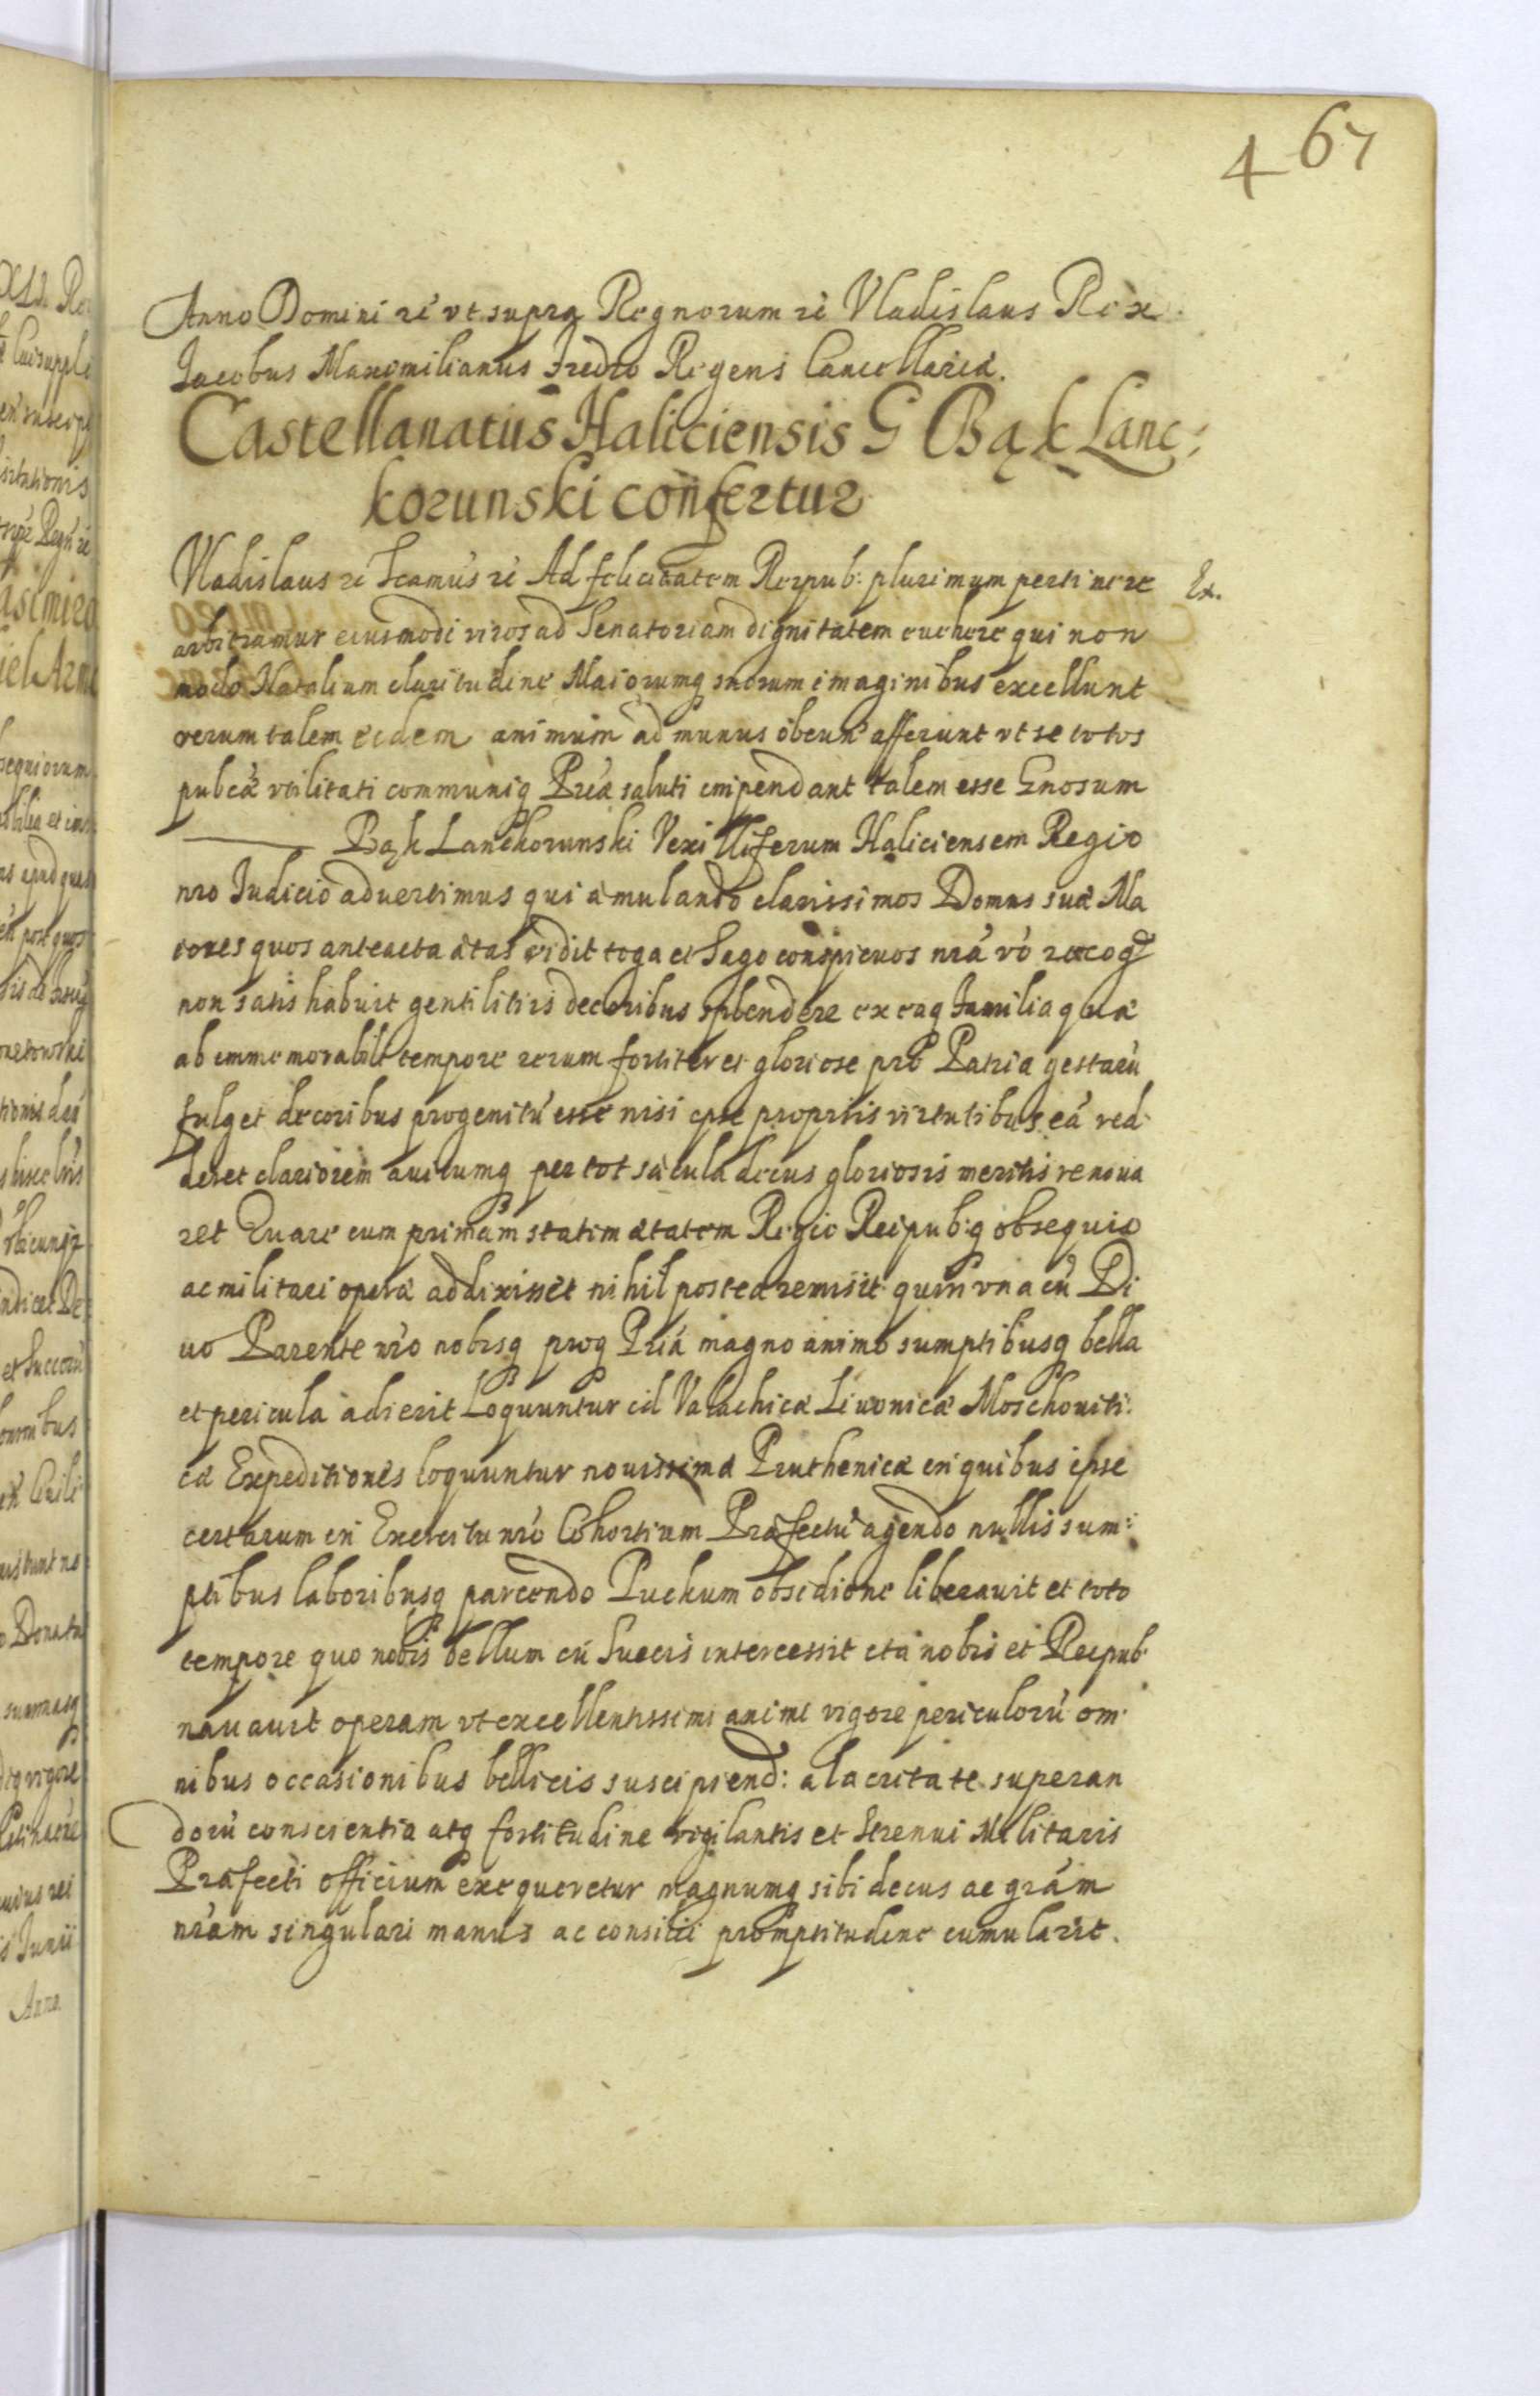 467
Anno Domini rć vt supra Regnorum rć Vladislaus Rex.
Jacobus Maximilianus Fredro Regens Cancellariæ.
Castellanatus Haliciensis G Bąk Lanc:
korunski confertur
Vladislaus rć Scamus rć Ad felicitatem Reipub: plurimum pertinere Ex.
arbitramur eiusmodi viros ad Senatoriam dignitatem euehere qui non
modo Natalium claritudine Maiorumq suorum imaginibus excellunt
verum talem eidem animum ad munus obeun afferunt vt se totos
pubcæ vtilitati communiq Priæ saluti impendant talem esse Gnosum
Bąk Lanckorunski Vexilliferum Haliciensem Regio
nro Iudicio aduertimus qui æmulando clarissimos Domus suæ Ma
iores quos anteacta ætas vidit toga et Sago conspicuos nrã vò recog
non satis habuit gentilitiis decoribus splendere ex eaq Familia quæ
ab immemorabili tempore rerum fortiter et gloriose pro Patria gestarũ
fulget decoribus progenitũ esse nisi ipse propriis virtutibus eã red
deret clariorem auitumq per tot sæcula decus gloriosis meritis renoua
ret Quare cum primam statim ætatem Regio Reipub:q obsequio
ac militari operæ addixisset nihil postea remisit quin vna cũ Di
uo Parente nro nobisq proq Priã magno animo sumptibusq bella
et pericula adierit Loquuntur id Valachicæ Liuonicæ Moschoviti:
cæ Expeditiones loquuntur nouissimæ Pruthenicæ in quibus ipse
certarum in Exercitu nro Cohortium Præfectũ agendo nullis sum:
ptibus laboribusq parcendo Puckum obsidione liberauit et toto
tempore quo nobis bellum cũ Suecis intercessit ita nobis et Reipub:
nauauit operam vt excellentissimi animi vigore periculorũ om:
nibus occasionibus bellicis suscipiend: alacritate superan
dorũ conscientia atq fortitudine vigilantis et Strenui Militaris
Præfecti officium exequeretur magnumq sibi decus ac grãm
nrãm singulari manus ac consilii promptitudine cumularit.